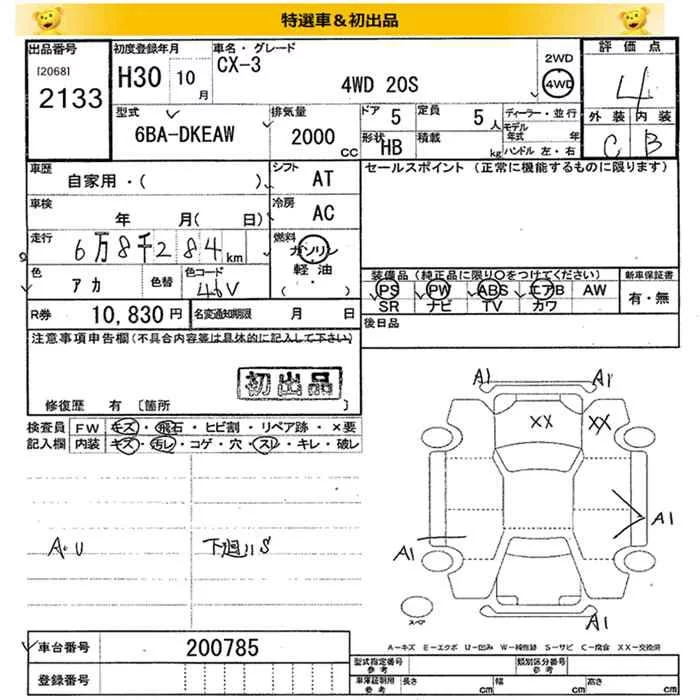 特選車＆初出品
出品番号
[2068]
2133
初度登録年月
H30 10月
車名・グレード
CX-3
4WD 20S
2WD
4WD
評価点
4
外装 内装
C B
型式
6BA-DKEAW
排気量
2000
CC
ドア 5
定員 5人
形状 HB
積載 kg
ディーラー・並行
モデル年式 年
ハンドル 左・右
車歴
自家用・( )
シフト AT
セールスポイント (正常に機能するものに限ります)
車検
年 月( 日)
冷房 AC
走行
6万8千284km
燃料
ガソリン
軽油
( )
色
アカ
色替
色コード
46V
装備品 (純正品に限り○をつけてください)
PS PW ABS エアB AW
SR ナビ TV カワ
新車保証書
有・無
R券 10,830円
名変通知期限 月 日
後日品
注意事項申告欄(不具合内容等は具体的に記入して下さい)
初出品
修復歴 有 [箇所 ]
検査員記入欄
FW キズ・飛石・ヒビ割・リペア跡・×要
内装 キズ・汚レ・コゲ・穴・スレ・キレ・破レ
A・U
下廻りS
A1 A1
XX XX
A1
A1
A1
スペア
A-キズ E-エクボ U-凹み W-補修跡 S-サビ C-腐食 XX-交換済
車台番号 200785
登録番号
型式指定番号
参考
類別区分番号
参考
車庫証明用
参考
長さ cm 幅 cm 高さ cm